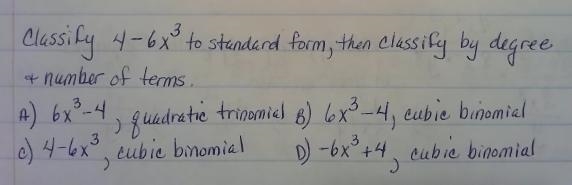 Classify 4-6x³ to standard form, then classify by degree
+ number of terms.
A) 6x³-4, quadratic trinomial B) 6x³-4, cubic binomial
C) 4-6x³, cubic binomial D) -6x³+4, cubic binomial